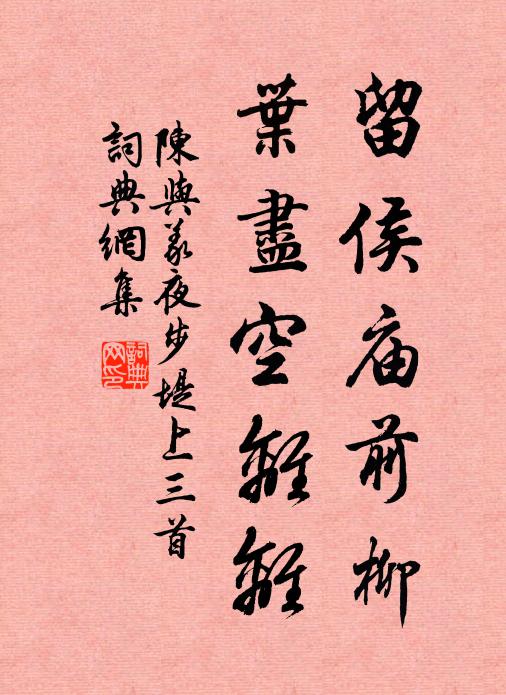 留侯庙前柳
葉盡空離離
陳與義夜步堤上三首
詞典網集
詞典网印